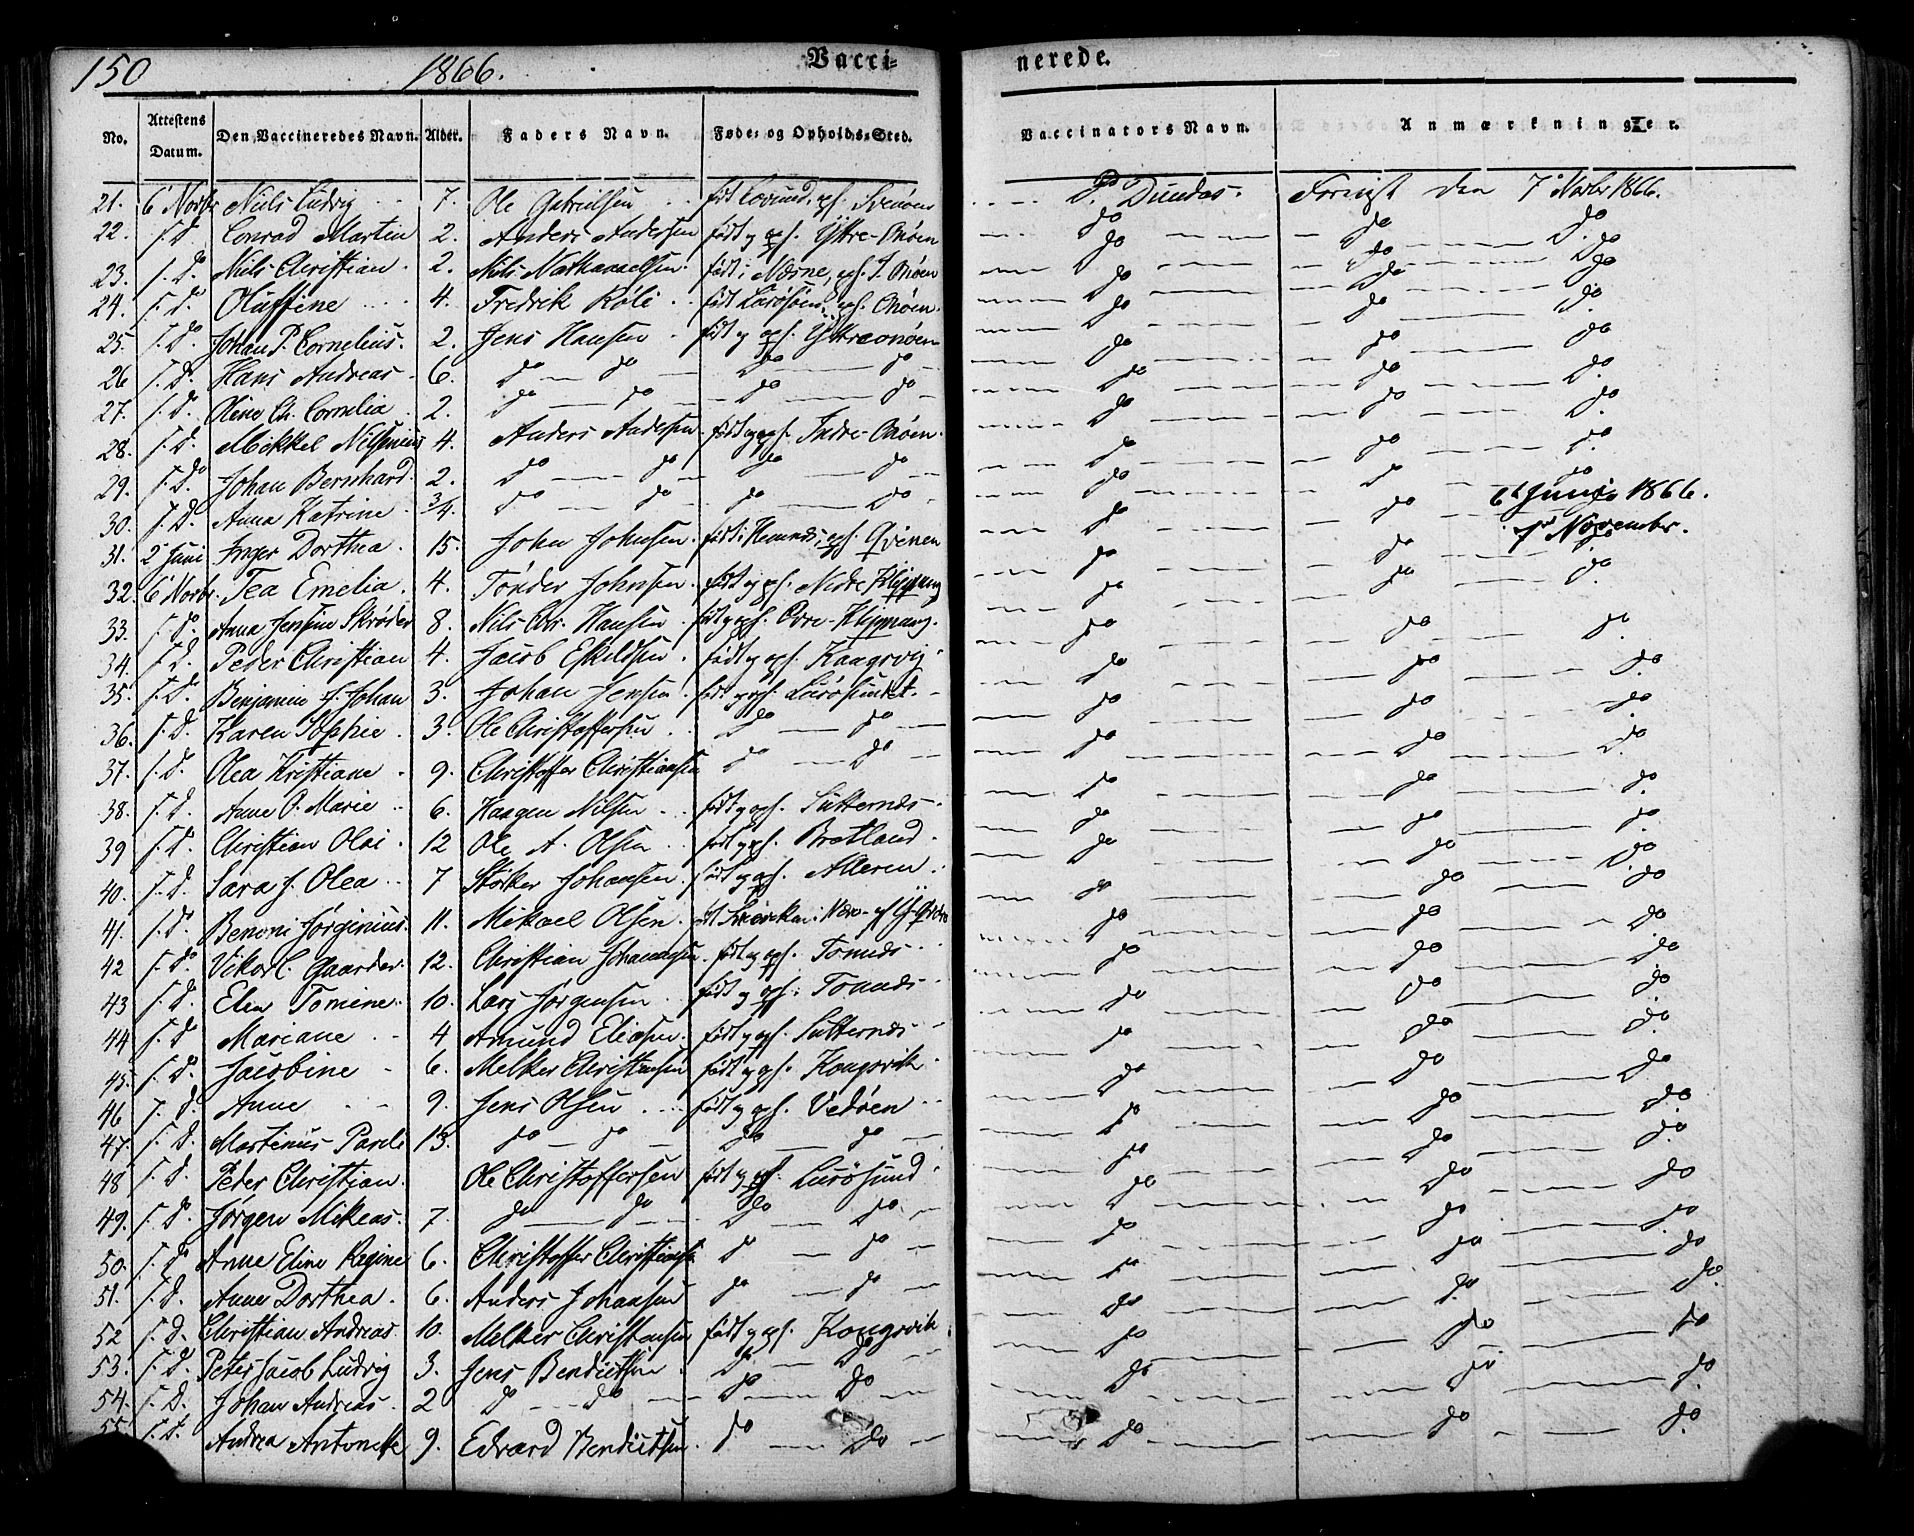 150 1866. Vacci- nerede.
No. Attestens Datum. Den Vaccineredes Navn. Alder. Faders Navn. Føde- og Opholds-Sted. Vaccinators Navn. Anmærkninger.
21. 6 Novbr Niels Ludvig 7. Ole Gabrielsen født Lovund, oph. Svenøen Dundas. Foreviist den 7 Novbr 1866.
22. Conrad Martin 2. Anders Andersen født og oph. Yttre-Onøen do do do
23. Do Niels Christian 2. Niels Nathanaelsen født i Næsne, oph. I. Onøen do do do
24. Do Oluffine 4. Fredrik Röli født Lurøsøen, oph. Onøen. do do do
25. Do Johan P. Cornelius. 2. Jens Hansen født og oph. Yttreonøen do do do
26 Do Hans Andreas 6. Do do Do do do do do
27. Do Oline Ch. Cornelia 2. Do do do do do do do
28. Do Mekkel Nilsenius 4. Anders Andersen født og oph. Indre-Onøen. do do do
29. Do Johan Bernhard 2. Do do do do do do do
30. Do Anna Katrine 3/4. Do do do do do do 6 Juni 1866.
31. 2 Juni Inger Dorthea 15. John Johnsen født i Hemnæs, oph. Qvinen do do 7 November.
32. 6 Novbr. Tea Emelia 4. Tønder Johnsen født og oph. Nedre Klippang do do do
33. Do Anna Jensine Skrøder 8. Nils Chr. Hansen født og oph. Övre-Klippang. do do do
34. Do Peder Christian 4. Jacob Eskildsen født og oph. Kongsvig do do do
35. Do Benjamin J. Johan 3. Johan Jensen født og oph. Lurøsundet. do do do
36. Do Karen Sophie 3. Ole Christoffersen do do do do do
37. Do Olea Kristiane 9. Christoffer Christiansen do do do do do
38. Do Anne O. Marie 6. Haagen Nilsen født og oph. Sütternæs do do do
39 Do Christian Olai 12 Ole A. Olsen født og oph. Bratland do do do
40. Do Sara J. Olea 7 Stølker Johansen født og oph. Alderen do do do
41. Do Benoni Jørginius. 11. Mikael Olsen do do do
42 Do Vikor C. Gaarder 12. Christian Johannesen født og oph. Tomnæs do do do
43 Do Elen Tomine 10. Lars Jørgensen født og oph. Tonnæs do do do
44 Do Mariane 4 Amund Eliasen født og oph. Sütternæs do do do
45. Do Jacobine 6. Melker Christensen født og oph. Kongsvik do do do
46 Do Anne 9. Jens Olsen født og oph. Vedøen do do do
47. Do Martinus Pareli 13. do do Do do do do do
48 Do Peder Christian Ole Christoffersen født og oph. Lurøsund do do do
49. Do Jørgen Mikeas. 7. do do Do do do do do
50. Do Anne Eline Regine 6. Christoffer Christiansen do do do do do
51. Do Anne Dorthea 6. Anders Johansen do do do do do
52 Do Christian Andreas 10. Melker Christensen født og oph. Kongsvik do do do
53. Do Peter Jacob Ludvig 3. Jens Bendictsen Do Do do do do
54. Do Johan Andreas 2 Do do Do Do do do do
55 Do Andrea Antonette 9. Edvard Bendictsen do Do do do do